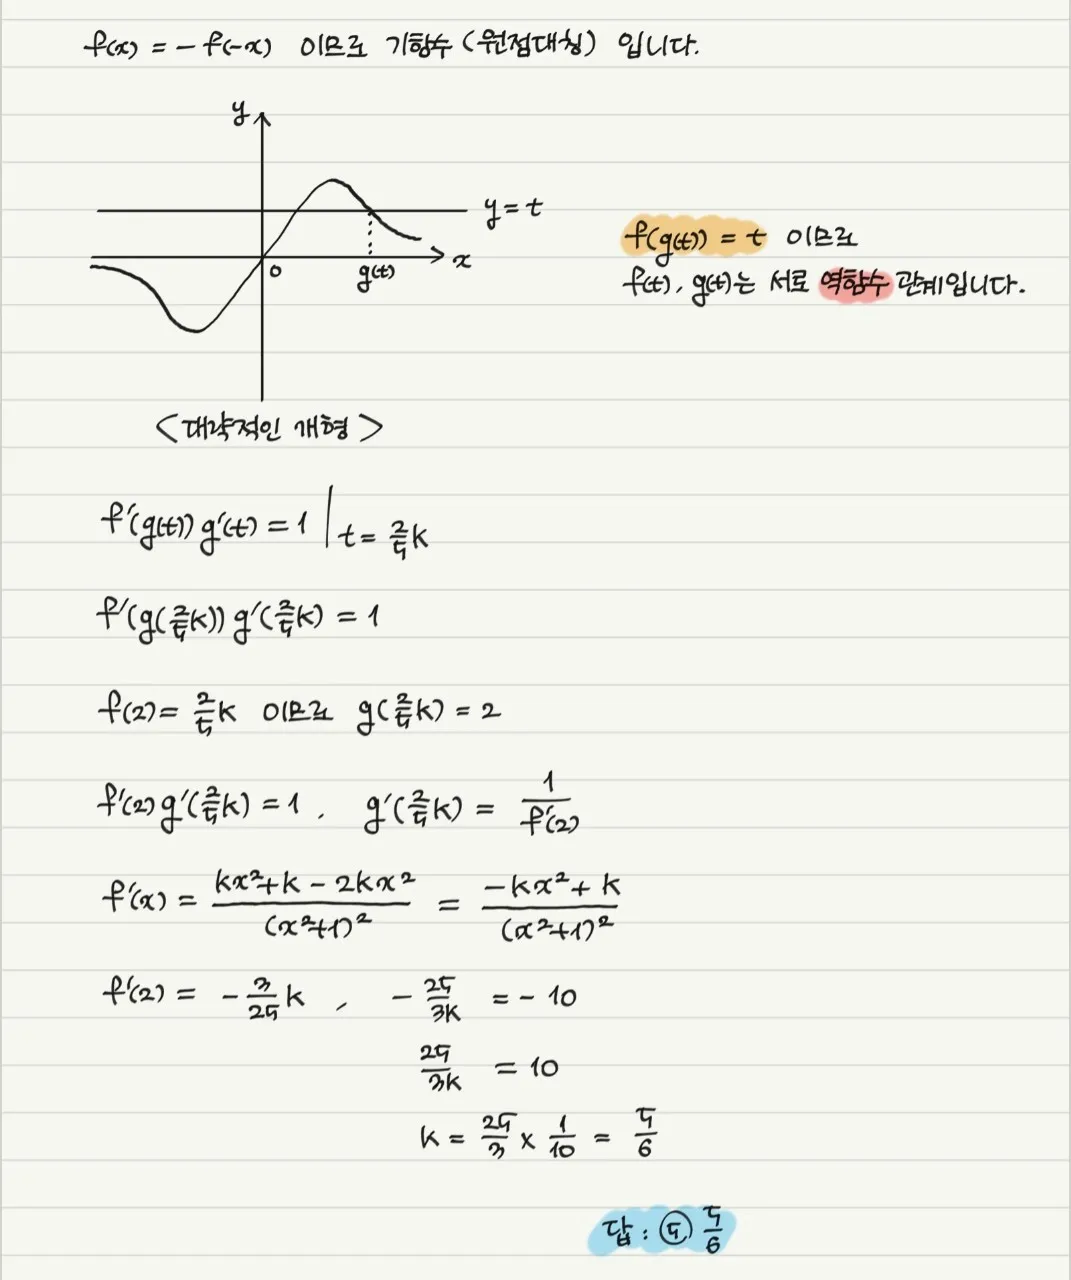 f(x) = -f(-x) 이므로 기함수 (원점대칭) 입니다.
y
y=t
x
0
g(t)
f(g(t)) = t 이므로
f(t), g(t)는 서로 역함수 관계입니다.
<대략적인 개형>
f'(g(t)) g'(t) = 1 | t = 2/5 k
f'(g(2/5 k)) g'(2/5 k) = 1
f(2) = 2/5 k 이므로 g(2/5 k) = 2
f'(2) g'(2/5 k) = 1 , g'(2/5 k) = 1/f'(2)
f'(x) = (kx²+k - 2kx²)/(x²+1)² = (-kx²+k)/(x²+1)²
f'(2) = -3/25 k , -25/3k = -10
25/3k = 10
k = 25/3 × 1/10 = 5/6
답 : ⑤ 5/6